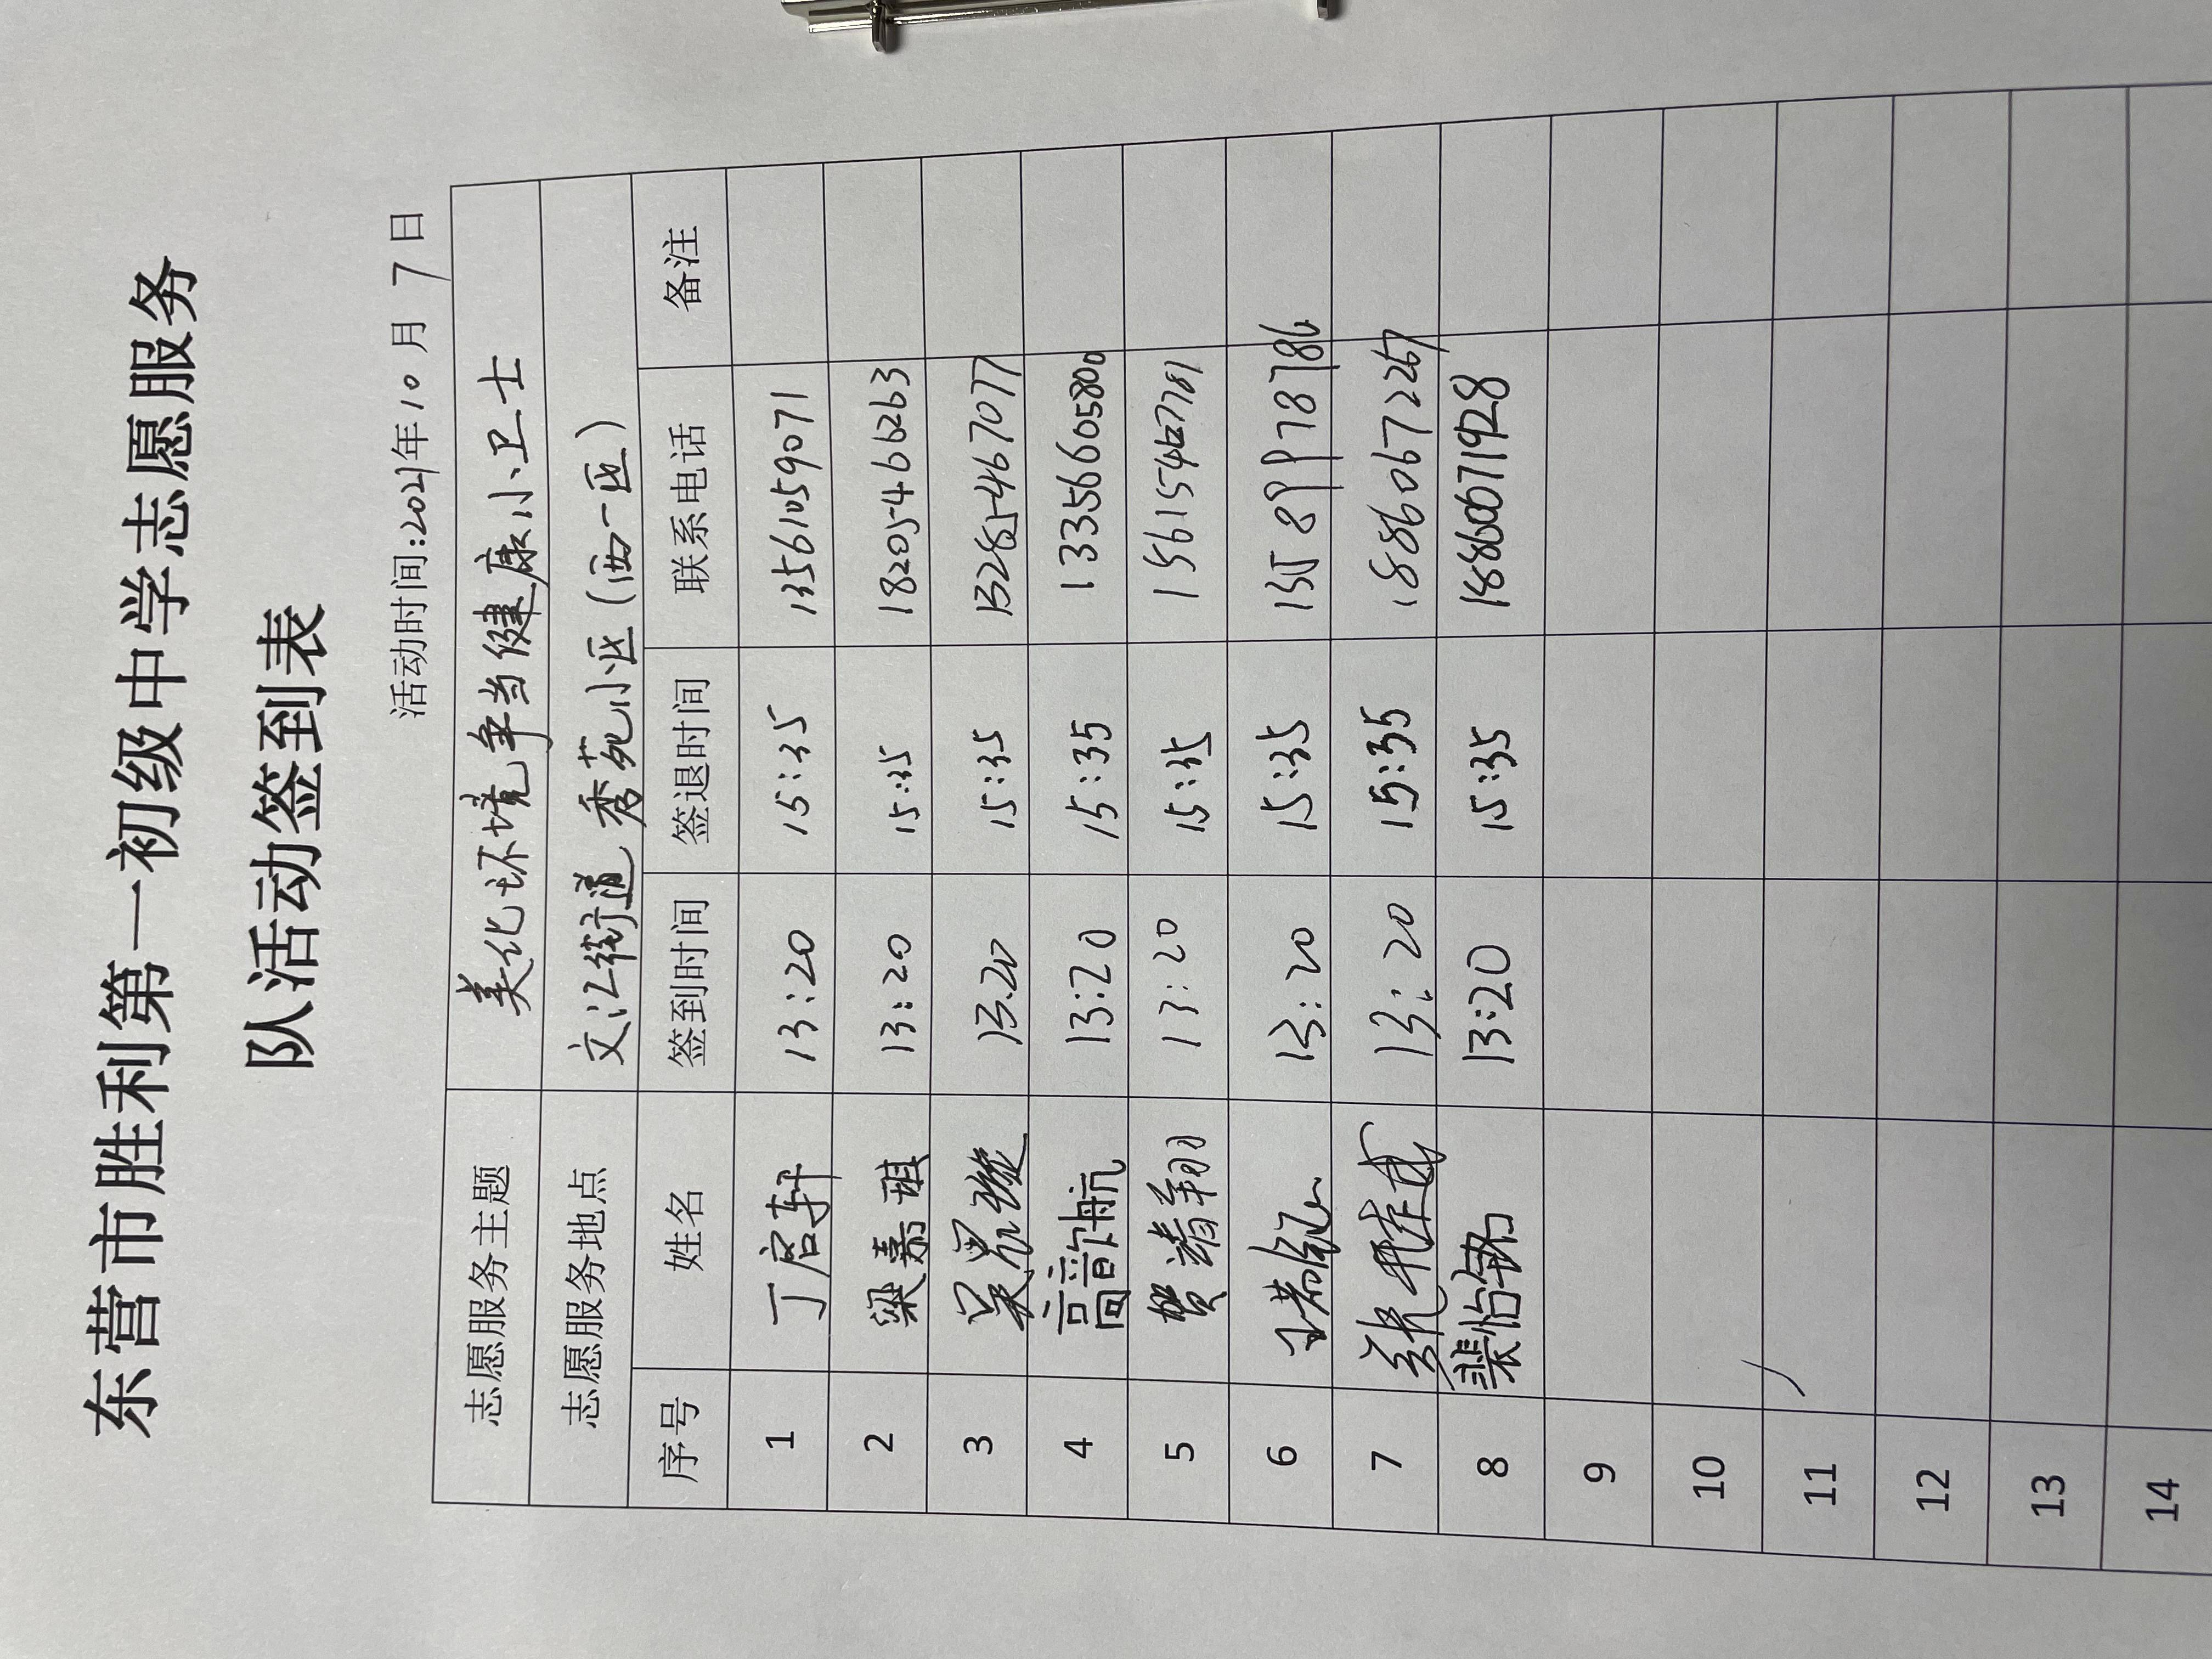 东营市胜利第一初级中学志愿服务
队活动签到表
活动时间:2021年10月7日
志愿服务主题 美化环境争当健康小卫士
志愿服务地点 文汇街道秀苑小区(西一区)
序号 姓名 签到时间 签退时间 联系电话 备注
1 丁启轩 13:20 15:35 13561059071
2 梁嘉琪 13:20 15:35 18205466263
3 吴 璇 13.20 15:35 13285467077
4 高歆航 13:20 15:35 13356605800
5 贺靖翔 13:20 15:35
6 13:20 15:35 15589978786
7 13:20 15:35 18860672267
8 裴怡铭 13:20 15:35 18860071928
9
10
11
12
13
14